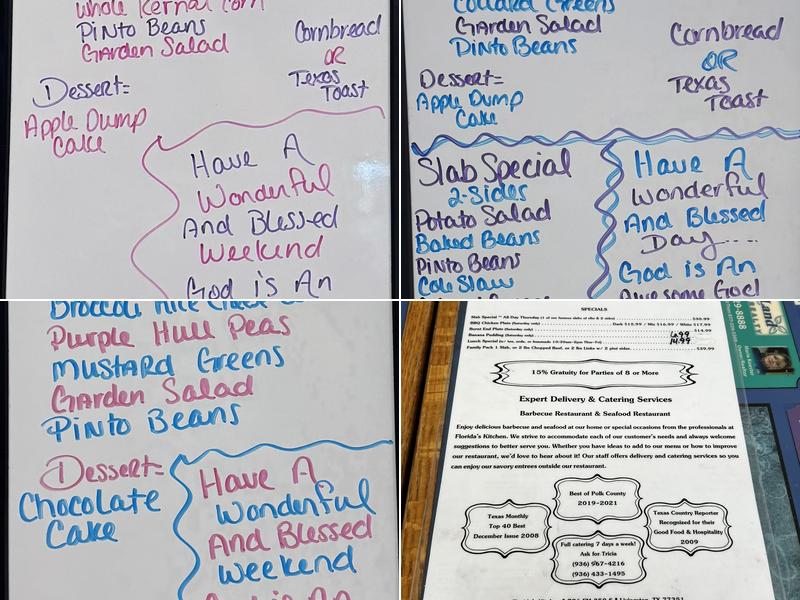 whole Kernal Corn
Pinto Beans
Garden Salad
Cornbread
OR
Texas
Toast
Dessert=
Apple Dump
Cake
Have A
Wonderful
And Blessed
Weekend
God is An
Collard Greens
Garden Salad
Pinto Beans
Cornbread
OR
Texas
Toast
Dessert=
Apple Dump
Cake
Slab Special
2-Sides
Potato Salad
Baked Beans
Pinto Beans
Cole Slaw
Have A
Wonderful
And Blessed
Day....
God is An
Awesome God
Purple Hull Peas
Mustard Greens
Garden Salad
Pinto Beans
Dessert=
Chocolate
Cake
Have A
Wonderful
And Blessed
Weekend
SPECIALS
15% Gratuity for Parties of 8 or More
Expert Delivery & Catering Services
Barbecue Restaurant & Seafood Restaurant
Enjoy delicious barbecue and seafood at our home or special occasions from the professionals at
Florida's Kitchen. We strive to accommodate each of our customer's needs and always welcome
suggestions to better serve you. Whether you have ideas to add to our menu or how to improve
our restaurant, we'd love to hear about it! Our staff offers delivery and catering services so you
can enjoy our savory entrees outside our restaurant.
Best of Polk County
2019-2021
Texas Monthly
Top 40 Best
December Issue 2008
Texas Country Reporter
Recognized for their
Good Food & Hospitality
2009
Full catering 7 days a week!
Ask for Tricia
(936) 967-4216
(936) 433-1495